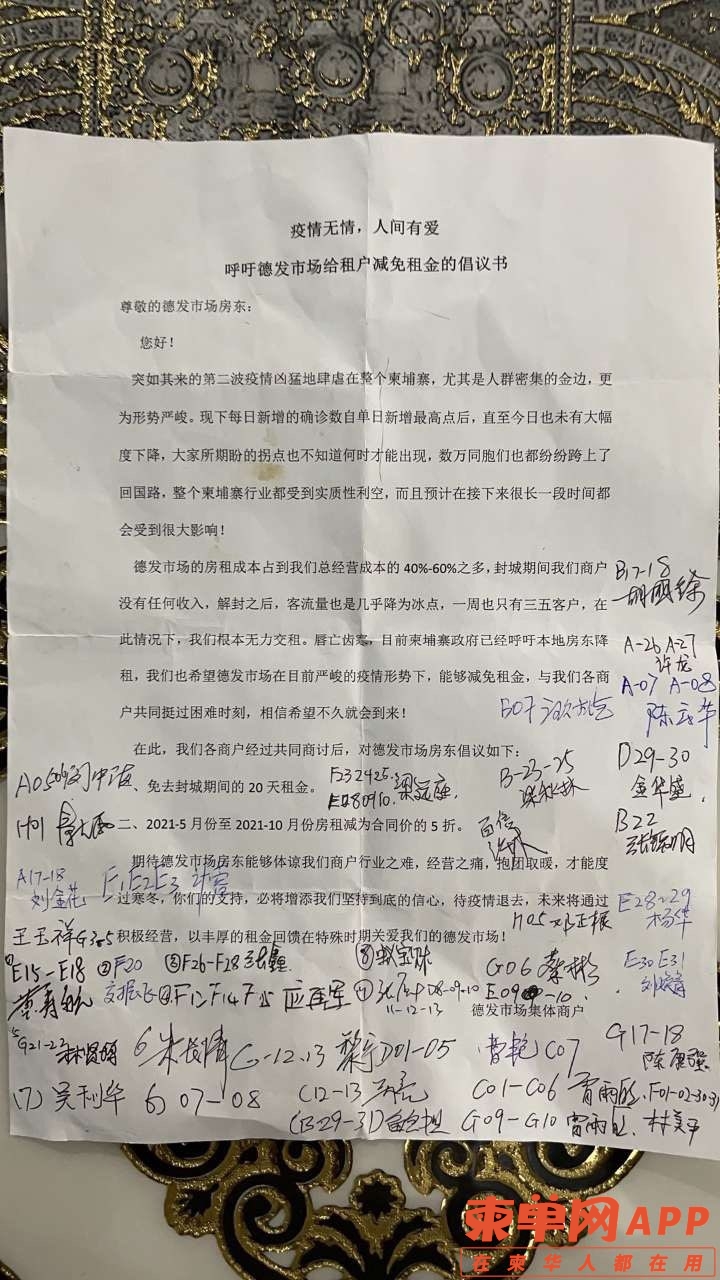 疫情无情，人间有爱
呼吁德发市场给租户减免租金的倡议书
尊敬的德发市场房东：
您好！
突如其来的第二波疫情凶猛地肆虐在整个柬埔寨，尤其是人群密集的金边，更
为形势严峻。现下每日新增的确诊数自单日新增最高点后，直至今日也未有大幅
度下降，大家所期盼的拐点也不知道何时才能出现，数万同胞们也都纷纷跨上了
回国路，整个柬埔寨行业都受到实质性利空，而且预计在接下来很长一段时间都
会受到很大影响！
德发市场的房租成本占到我们总经营成本的 40%-60%之多，封城期间我们商户
没有任何收入，解封之后，客流量也是几乎降为冰点，一周也只有三五客户，在
此情况下，我们根本无力交租。唇亡齿寒，目前柬埔寨政府已经呼吁本地房东降
租，我们也希望德发市场在目前严峻的疫情形势下，能够减免租金，与我们各商
户共同挺过困难时刻，相信希望不久就会到来！
在此，我们各商户经过共同商讨后，对德发市场房东倡议如下：
、免去封城期间的 20 天租金。
二、2021-5 月份至 2021-10 月份房租减为合同价的 5 折。
期待德发市场房东能够体谅我们商户行业之难，经营之痛，抱团取暖，才能度
过寒冬，你们的支持，必将增添我们坚持到底的信心，待疫情退去，未来将通过
积极经营，以丰厚的租金回馈在特殊时期关爱我们的德发市场！
德发市场集体商户
B17-18
A-26 A-27
许龙
A-07 A-08
B07
D29-30
金华盛
B-23-25
B22
H01
A17-18
刘金花
E1E2E3
百信
E28-29
杨华
王玉祥G3
H05 邓正根
E30 E31
E15-E18
②F20
③F26-F28
G06 蔡彬
E09 -10
④F12 F14 F15
11-12-13
⑤G21-23
G-12.13
D01-05
曹艳 C07
G17-18
(7) 吴利华
6) 07-08
C12-13
C01-C06
F01-02-30-31
(B29-31)
G09-G10
林美平
柬单网APP
在柬华人都在用